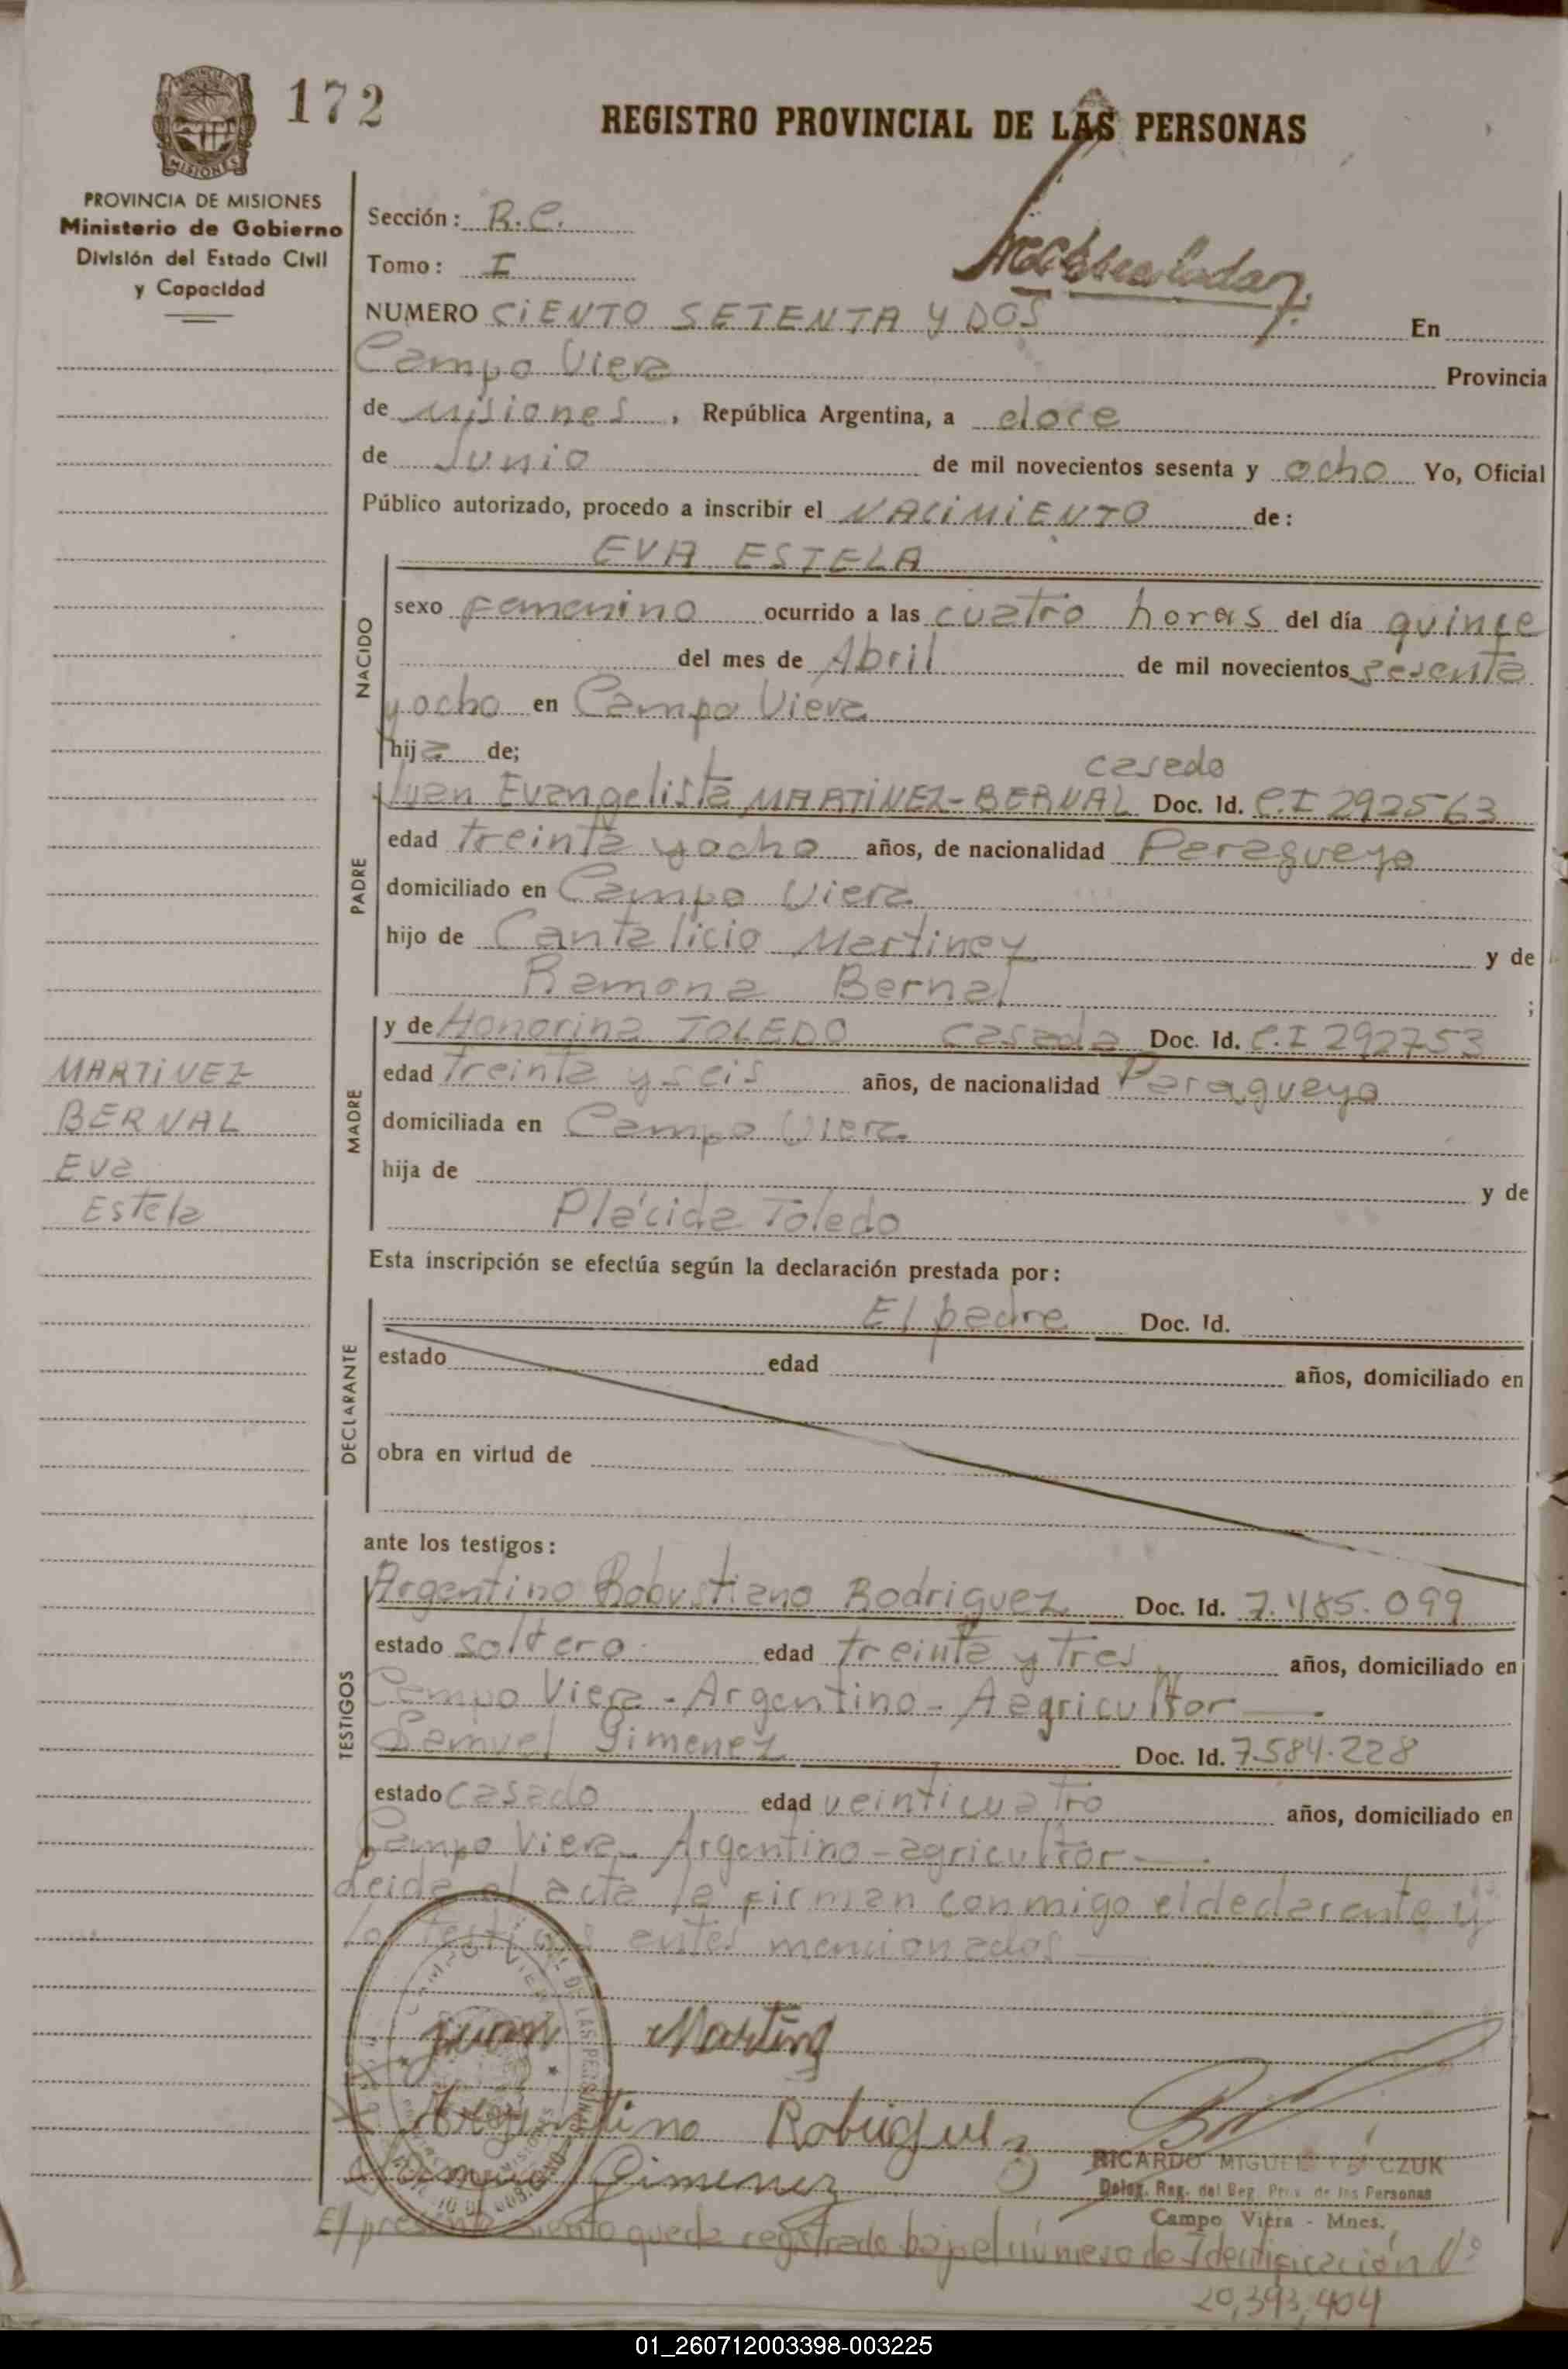 172
REGISTRO PROVINCIAL DE LAS PERSONAS
MISIONES
PROVINCIA DE MISIONES
Ministerio de Gobierno
División del Estado Civil
y Capacidad
Sección: R.C.
Tomo: I
NUMERO CIENTO SETENTA Y DOS En
Campo Viera Provincia
de Misiones, República Argentina, a doce
de Junio de mil novecientos sesenta y ocho Yo, Oficial
Público autorizado, procedo a inscribir el NACIMIENTO de:
EVA ESTELA
NACIDO
sexo Femenino ocurrido a las cuatro horas del día quince
del mes de Abril de mil novecientos sesenta
y ocho en Campo Viera
hija de;
casado
PADRE
Juan Evangelista MARTINEZ-BERNAL Doc. Id. C.I 292563
edad treinta y ocho años, de nacionalidad Paragueyo
domiciliado en Campo Viera
hijo de Cantalicio Martinez y de
Ramona Bernal ;
MADRE
y de Honorina TOLEDO casada Doc. Id. C.I 292753
edad treinta y seis años, de nacionalidad Paragueya
domiciliada en Campo Viera
hija de y de
Plácida Toledo
MARTINEZ
BERNAL
Eva
Estela
Esta inscripción se efectúa según la declaración prestada por:
DECLARANTE
El padre Doc. Id.
estado edad años, domiciliado en
obra en virtud de
ante los testigos:
TESTIGOS
Argentino Robustiano Rodriguez Doc. Id. 7.485.099
estado soltero edad treinta y tres años, domiciliado en
Campo Viera - Argentino - Aegricultor
Samuel Gimenez Doc. Id. 7.584.228
estado casado edad veinticuatro años, domiciliado en
Campo Viera - Argentino - agricultor
Leida el acta la firman conmigo el declarante y
los testigos antes mencionados
Juan Martinz
Argentino Rodriguez
Samuel Gimenez
RICARDO MIGUEL CZUK
Deleg. Reg. del Reg. Prov. de las Personas
Campo Viera - Mnes.
El presente asiento queda registrado bajo el número de Identificación Nº
20,393,404
01_260712003398-003225